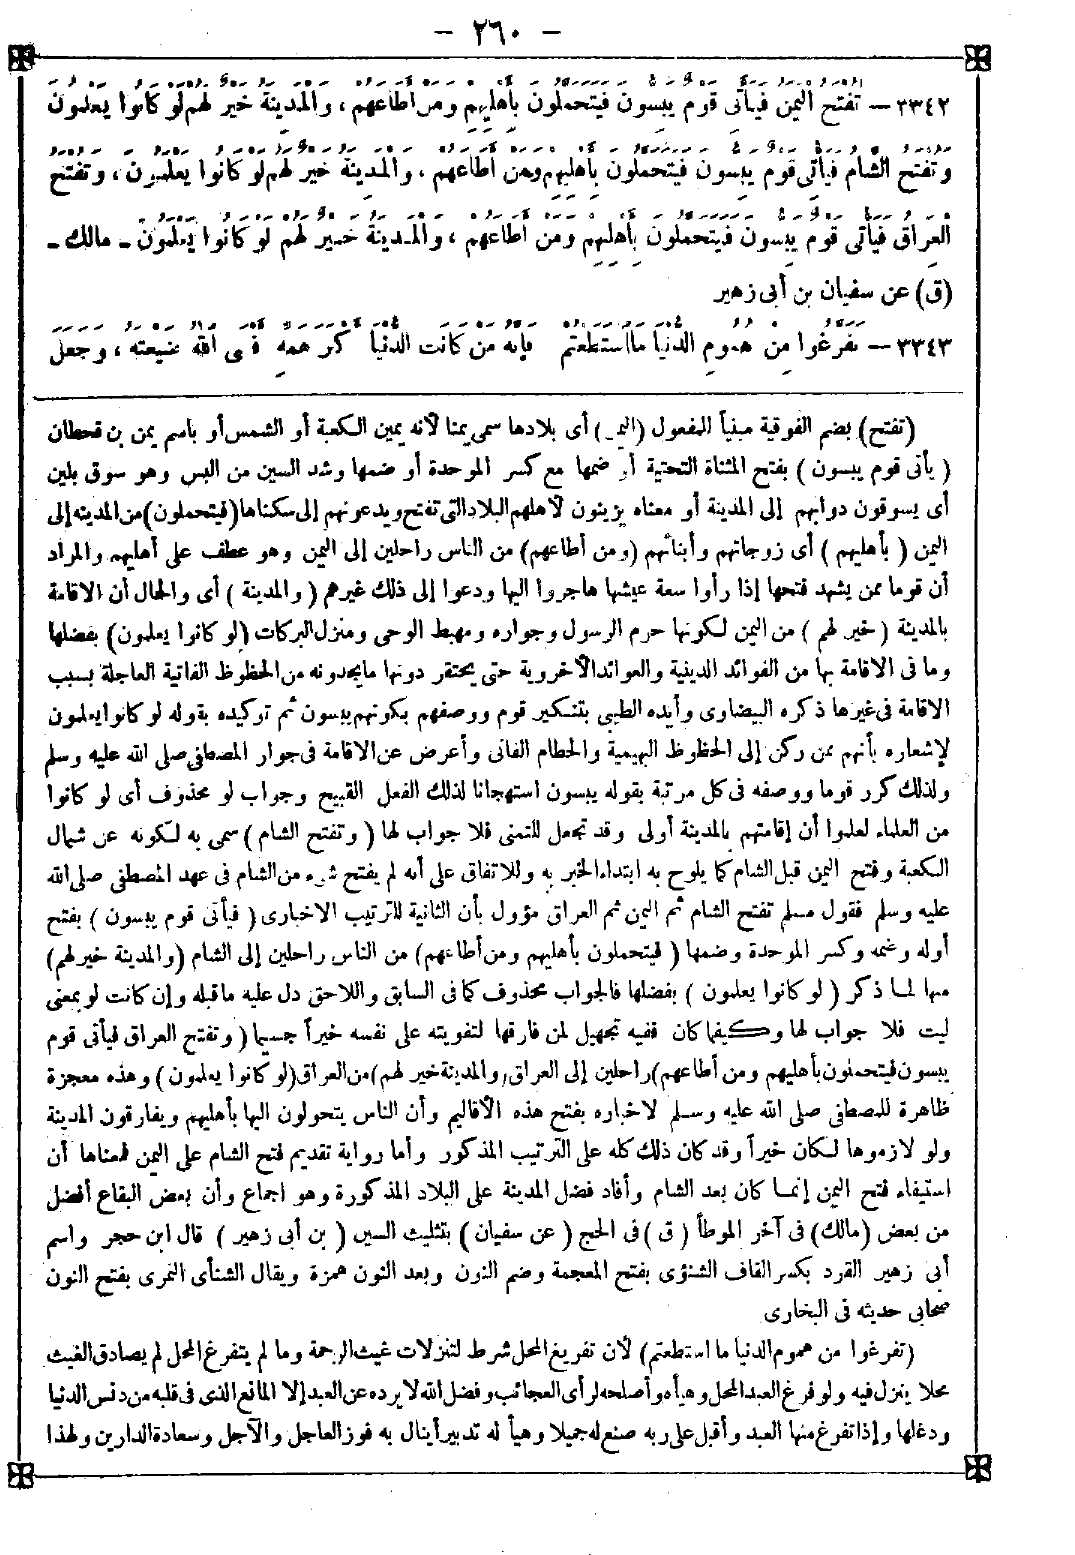 - ٢٦٠ -
٣٣٤٢ - تُفْتَحُ الْيَمَنُ فَيَأْتِي قَوْمٌ يَبُسُّونَ فَيَتَحَمَّلُونَ بِأَهْلِيهِمْ وَمَنْ أَطَاعَهُمْ ، وَالْمَدِينَةُ خَيْرٌ لَهُمْ لَوْ كَانُوا يَعْلَمُونَ
وَتُفْتَحُ الشَّامُ فَيَأْتِي قَوْمٌ يَبُسُّونَ فَيَتَحَمَّلُونَ بِأَهْلِيهِمْ وَمَنْ أَطَاعَهُمْ ، وَالْمَدِينَةُ خَيْرٌ لَهُمْ لَوْ كَانُوا يَعْلَمُونَ ، وَتُفْتَحُ
الْعِرَاقُ فَيَأْتِي قَوْمٌ يَبُسُّونَ فَيَتَحَمَّلُونَ بِأَهْلِيهِمْ وَمَنْ أَطَاعَهُمْ ، وَالْمَدِينَةُ خَيْرٌ لَهُمْ لَوْ كَانُوا يَعْلَمُونَ - مالك -
(ق) عن سفيان بن أبى زهير
٣٣٤٣ - تَفَرَّغُوا مِنْ هُمُومِ الدُّنْيَا مَا اسْتَطَعْتُمْ فَإِنَّهُ مَنْ كَانَتِ الدُّنْيَا أَكْبَرَ هَمِّهِ أَفْشَى اللّٰهُ ضَيْعَتَهُ ، وَجَعَلَ
(تفتح) بضم الفوقية مبنياً للمفعول (اليمن) أى بلادها سمى يمنا لأنه يمين الكعبة أو الشمس أو باسم يمن بن قحطان
( يأتى قوم يبسون ) بفتح المثناة التحتية أو ضمها مع كسر الموحدة أو ضمها وشد السين من البس وهو سوق بلين
أى يسوقون دوابهم إلى المدينة أو معناه يزينون لأهلهم البلاد التى تفتح ويدعونهم إلى سكناها (فيتحملون) من المدينة إلى
اليمن ( بأهليهم ) أى زوجاتهم وأبنائهم (ومن أطاعهم) من الناس راحلين إلى اليمن وهو عطف على أهليهم والمراد
أن قوما ممن يشهد فتحها إذا رأوا سعة عيشها هاجروا اليها ودعوا إلى ذلك غيرهم ( والمدينة ) أى والحال أن الاقامة
بالمدينة ( خير لهم ) من اليمن لكونها حرم الرسول وجواره ومهبط الوحى ومنزل البركات (لو كانوا يعلمون) بفضلها
وما فى الاقامة بها من الفوائد الدينية والعوائد الأخروية حتى يحتقر دونها ما يجدونه من الحظوظ الفانية العاجلة بسبب
الاقامة فى غيرها ذكره البيضاوى وأيده الطيبى بتنكير قوم ووصفهم بكونهم يبسون ثم توكيده بقوله لو كانوا يعلمون
لإشعاره بأنهم ممن ركن إلى الحظوظ البهيمية والحطام الفانى وأعرض عن الاقامة فى جوار المصطفى صلى الله عليه وسلم
ولذلك كرر قوما ووصفه فى كل مرتبة بقوله يبسون استهجانا لذلك الفعل القبيح وجواب لو محذوف أى لو كانوا
من العلماء لعلموا أن إقامتهم بالمدينة أولى وقد تجعل للتمنى فلا جواب لها ( وتفتح الشام ) سمى به لكونه عن شمال
الكعبة وفتح اليمن قبل الشام كما يلوح به ابتداء الخبر به وللاتفاق على أنه لم يفتح شىء من الشام فى عهد المصطفى صلى الله
عليه وسلم فقول مسلم تفتح الشام ثم اليمن ثم العراق مؤول بأن الثانية للترتيب الاخبارى ( فيأتى قوم يبسون ) بفتح
أوله وضمه وكسر الموحدة وضمها ( فيتحملون بأهليهم ومن أطاعهم) من الناس راحلين إلى الشام (والمدينة خير لهم)
منها لما ذكر ( لو كانوا يعلمون ) بفضلها فالجواب محذوف كما فى السابق واللاحق دل عليه ما قبله وإن كانت لو بمعنى
ليت فلا جواب لها وكيفما كان ففيه تجهيل لمن فارقها لتفويته على نفسه خيراً جسيما ( وتفتح العراق فيأتى قوم
يبسون فيتحملون بأهليهم ومن أطاعهم) راحلين إلى العراق (والمدينة خير لهم) من العراق (لو كانوا يعلمون) وهذه معجزة
ظاهرة للمصطفى صلى الله عليه وسلم لاخباره بفتح هذه الأقاليم وأن الناس يتحولون اليها بأهليهم ويفارقون المدينة
ولو لازموها لكان خيراً وقد كان ذلك كله على الترتيب المذكور وأما رواية تقديم فتح الشام على اليمن فمعناها أن
استيفاء فتح اليمن إنما كان بعد الشام وأفاد فضل المدينة على البلاد المذكورة وهو اجماع وأن بعض البقاع أفضل
من بعض (مالك) فى آخر الموطأ ( ق ) فى الحج ( عن سفيان ) بتثليث السين ( بن أبى زهير ) قال ابن حجر واسم
أبى زهير القرد بكسر القاف الشنؤى بفتح المعجمة وضم النون وبعد النون همزة ويقال الشنأى النمرى بفتح النون
صحابى حديثه فى البخارى
(تفرغوا من هموم الدنيا ما استطعتم) لأن تفريغ المحل شرط لتنزلات غيث الرحمة وما لم يتفرغ المحل لم يصادق الغيث
محلا ينزل فيه ولو فرغ العبد المحل وهيأه وأصلحه لرأى العجائب وفضل الله لا يرده عن العبد إلا المانع الذى فى قلبه من دنس الدنيا
ودغلها وإذا تفرغ منها العبد وأقبل على ربه صنع له جميلا وهيأ له تدبيراً ينال به فوز العاجل والآجل وسعادة الدارين ولهذا